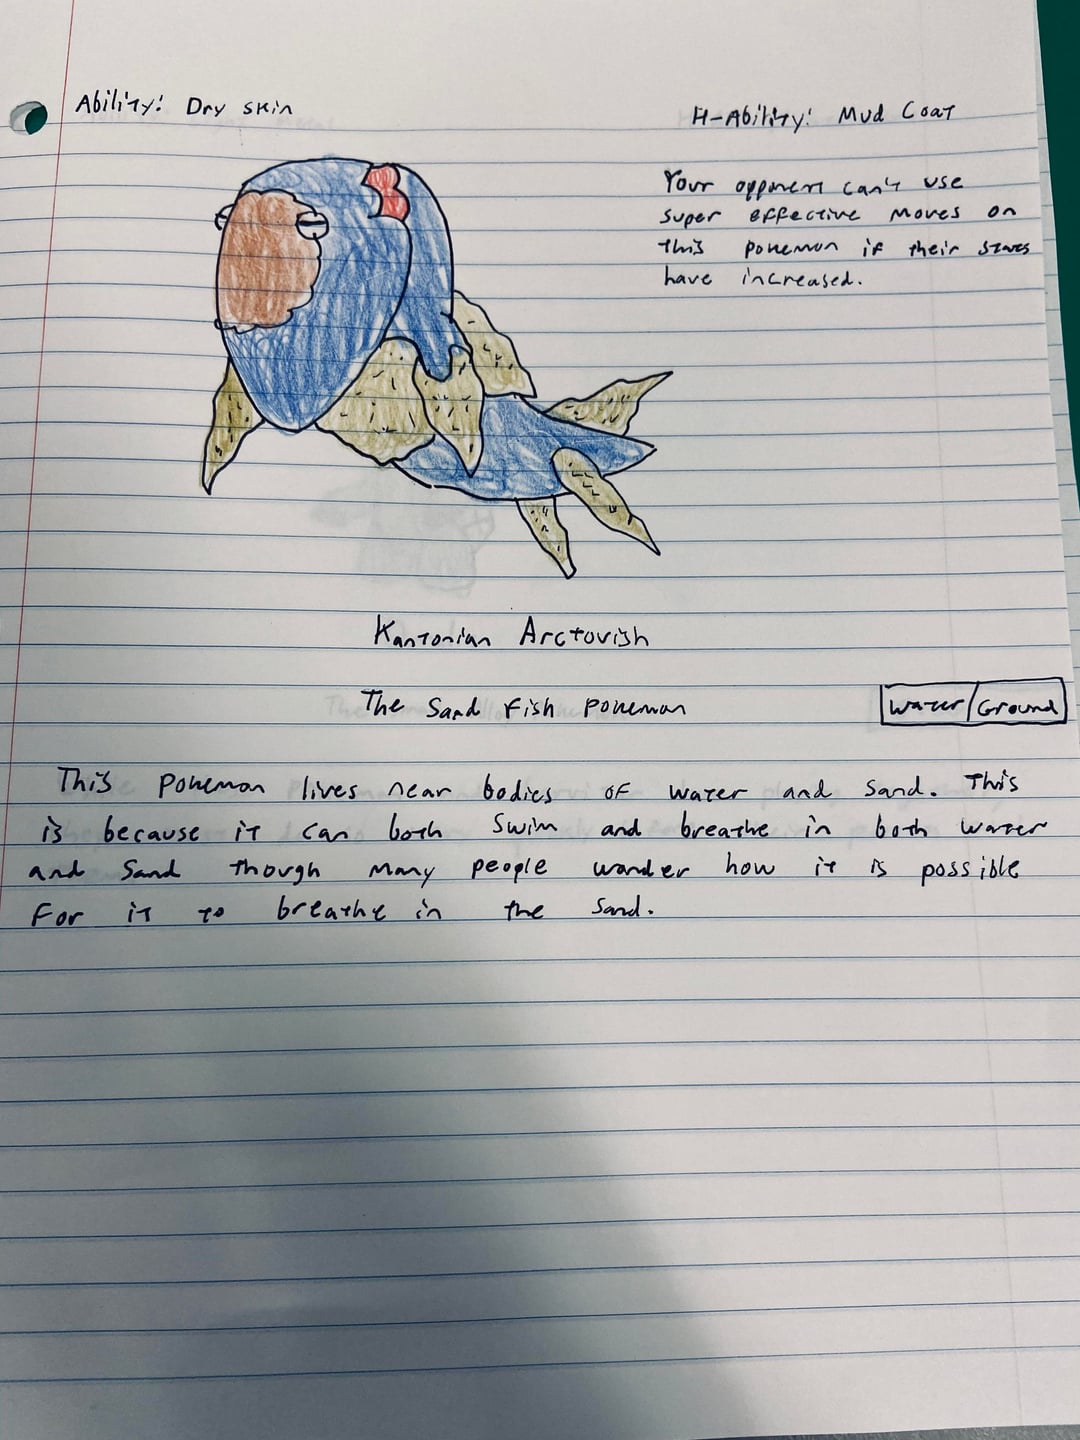 Ability: Dry skin
H-Ability: Mud Coat
Your opponent can't use
super effective moves on
this pokemon if their stats
have increased.
Kantonian Arctovish
The Sand Fish Pokemon
Water/Ground
This Pokemon lives near bodies of water and sand. This
is because it can both swim and breathe in both water
and sand though many people wonder how it is possible
for it to breathe in the sand.